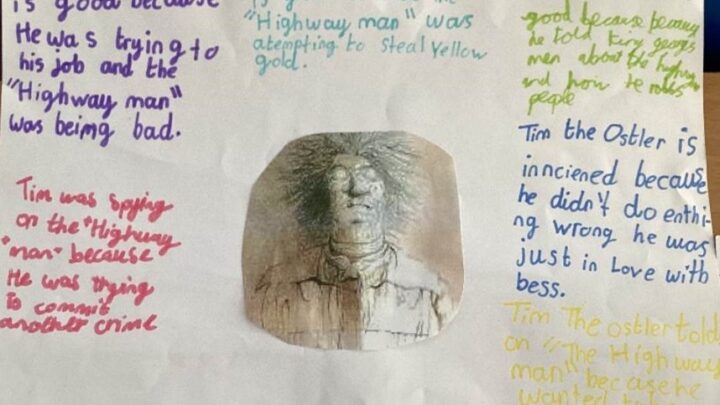 is good because
He was trying to
his job and the
"Highway man"
was being bad.
"Highway man" was
atempting to steal Yellow
gold.
good because because
he told king georges
men about the
and how he robs
people
Tim the Ostler is
innciened because
he didn't do enthi-
ng wrong he was
just in Love with
bess.
Tim was spying
on the "Highway
"man" because
He was trying
to commit
another crime
Tim The ostler told
on "The High way
man" because he
wanted to